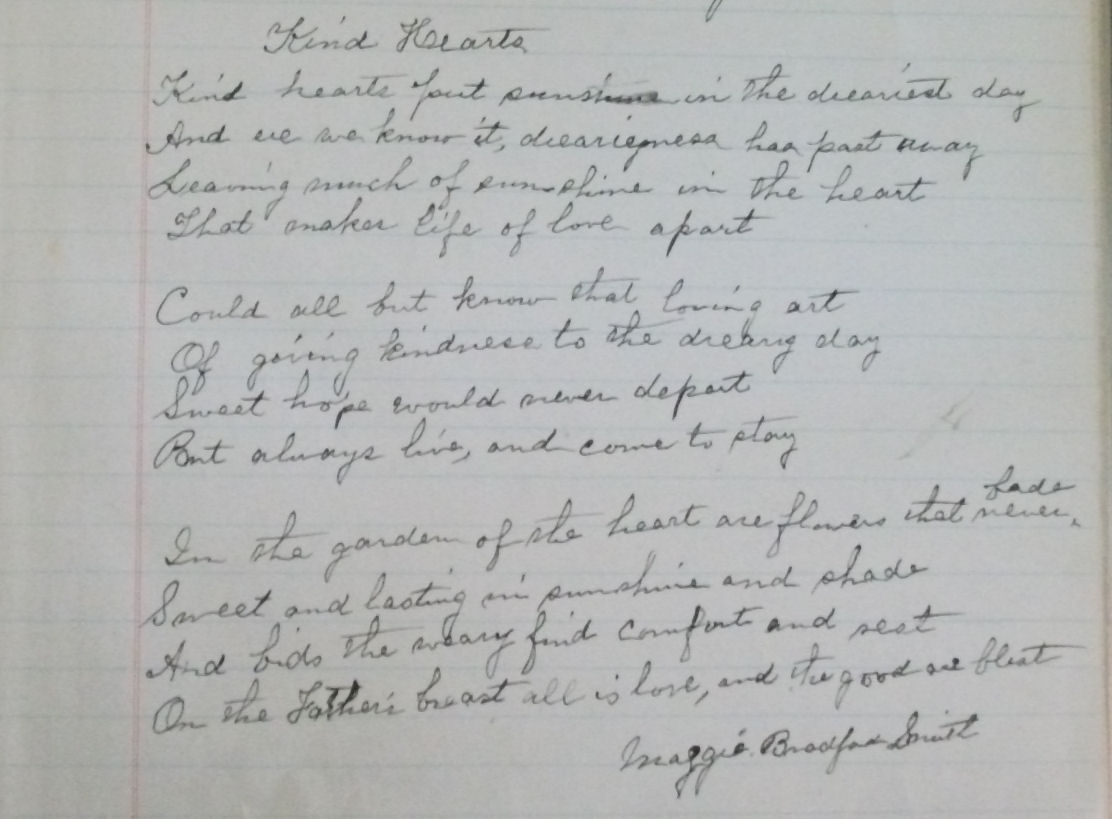 Kind Hearts
Kind hearts put sunshine in the dreariest day
And ere we know it, drearyness has past away
Leaving much of sunshine in the heart
That makes life of love apart
Could all but know that loving art
Of giving kindness to the dreary day
Sweet hope would never depart
But always live, and come to stay
fade
In the garden of the heart are flowers that never,
Sweet and lasting in sunshine and shade
And bids the weary find comfort and rest
On the Father's breast all is love, and the good are blest
Maggie Smith